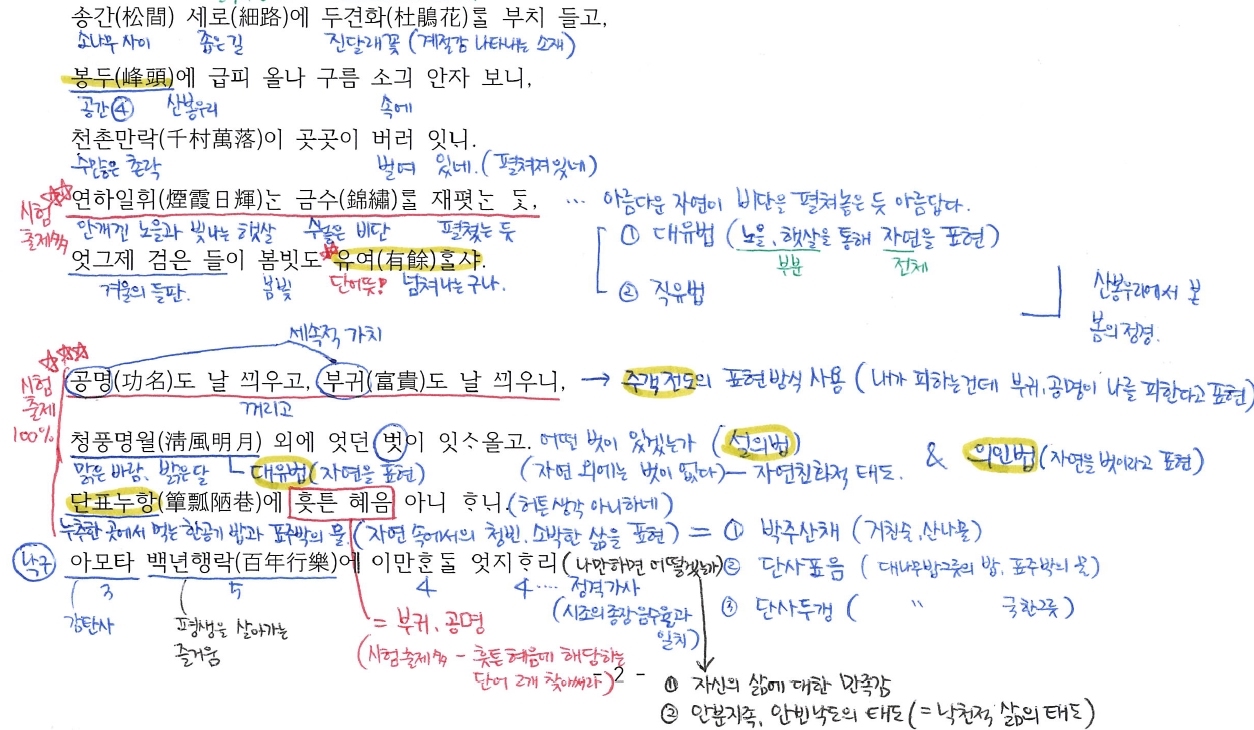 송간(松間) 세로(細路)에 두견화(杜鵑花)를 부치 들고,
소나무 사이 좁은 길 진달래꽃 (계절감 나타내는 소재)
봉두(峰頭)에 급피 올나 구름 소긔 안자 보니,
공간④ 산봉우리 속에
천촌만락(千村萬落)이 곳곳이 버러 잇늬.
수많은 촌락 벌여 있네. (펼쳐져 있네)
시험 출제多
연하일휘(煙霞日輝)는 금수(錦繡)를 재폇는 듯, … 아름다운 자연이 비단을 펼쳐놓은 듯 아름답다.
안개낀 노을과 빛나는 햇살 수놓은 비단 펼쳤는 듯
① 대유법 (노을, 햇살을 통해 자연을 표현)
부분 전체
엇그제 검은 들이 봄빗도 유여(有餘)홀샤.
겨울의 들판. 봄빛 단어뜻! 넘쳐나는구나.
② 직유법
산봉우리에서 본
봄의 정경.
세속적 가치
시험 출제 100%
공명(功名)도 날 씌우고, 부귀(富貴)도 날 씌우니, → 주객전도의 표현방식 사용 (내가 피하는건데 부귀, 공명이 나를 피한다고 표현)
꺼리고
청풍명월(淸風明月) 외에 엇던 벗이 잇ᄉ올고. 어떤 벗이 있겠는가 (설의법) & 의인법 (자연을 벗이라고 표현)
맑은 바람, 밝은 달 대유법 (자연을 표현) (자연 외에는 벗이 없다) — 자연친화적 태도.
단표누항(簞瓢陋巷)에 흣튼 혜음 아니 ᄒᆞ늬. (허튼 생각 아니하네)
누추한 곳에서 먹는 한공기 밥과 표주박의 물. (자연 속에서의 청빈, 소박한 삶을 표현) = ① 박주산채 (거친술, 산나물)
낙구 아모타 백년행락(百年行樂)에 이만ᄒᆞᆫ돌 엇지ᄒᆞ리 (나만하면 어떻겠는가)
② 단사표음 (대나무밥그릇의 밥, 표주박의 물)
3 5 4 4 …. 정격가사
(시조의 종장 음수율과 일치)
③ 단사두갱 ( " 국 한그릇)
감탄사 평생을 살아가는 즐거움
= 부귀, 공명
(시험출제多 - 흣튼 혜음에 해당하는
단어 2개 찾아써라)
- 2 -
① 자신의 삶에 대한 만족감
② 안분지족, 안빈낙도의 태도 (= 낙천적 삶의 태도)